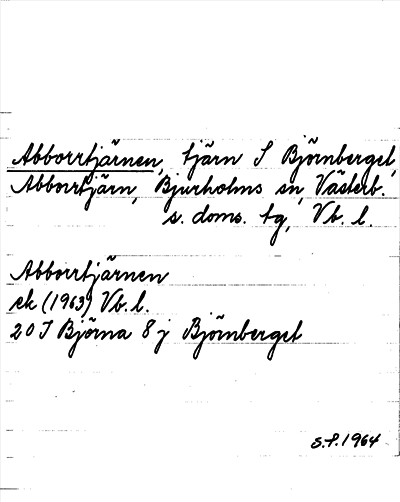 Abborrtjärnen, tjärn S Björnberget,
Abborrtjärn, Bjurholms sn, Västerb.
s. doms. tg, Vb. l.
Abborrtjärnen
ek (1963) Vb. l.
20 I Björna 8 j Björnberget
S.P. 1964